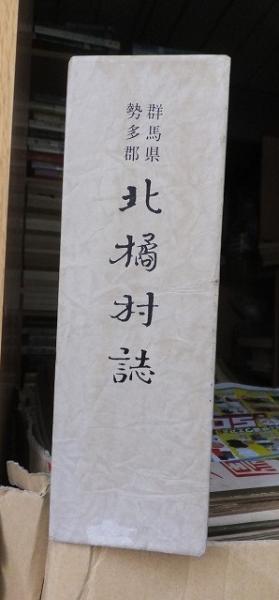 群馬県
勢多郡
北橘村誌